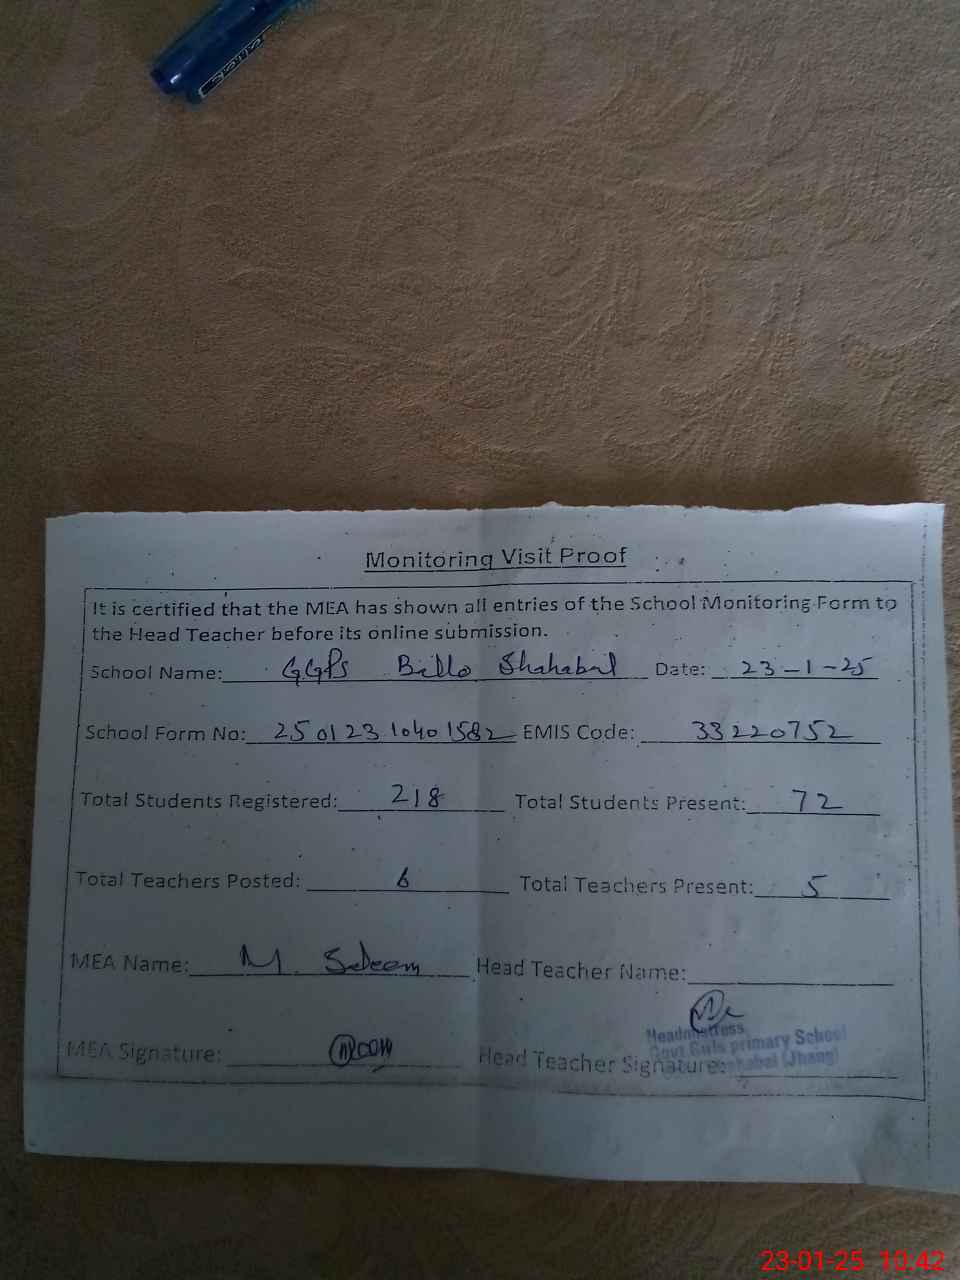 Monitoring Visit Proof
It is certified that the MEA has shown all entries of the School Monitoring Form to
the Head Teacher before its online submission.
School Name: GGPS Bello Shahabal Date: 23-1-25
School Form No: 25012310401582 EMIS Code: 33220752
Total Students Registered: 218 Total Students Present: 72
Total Teachers Posted: 6 Total Teachers Present: 5
MEA Name: M. Saleem Head Teacher Name:
MEA Signature: Head Teacher Signature:
Headmistress
Govt Girls primary School
(Jhang)
23-01-25 10:42